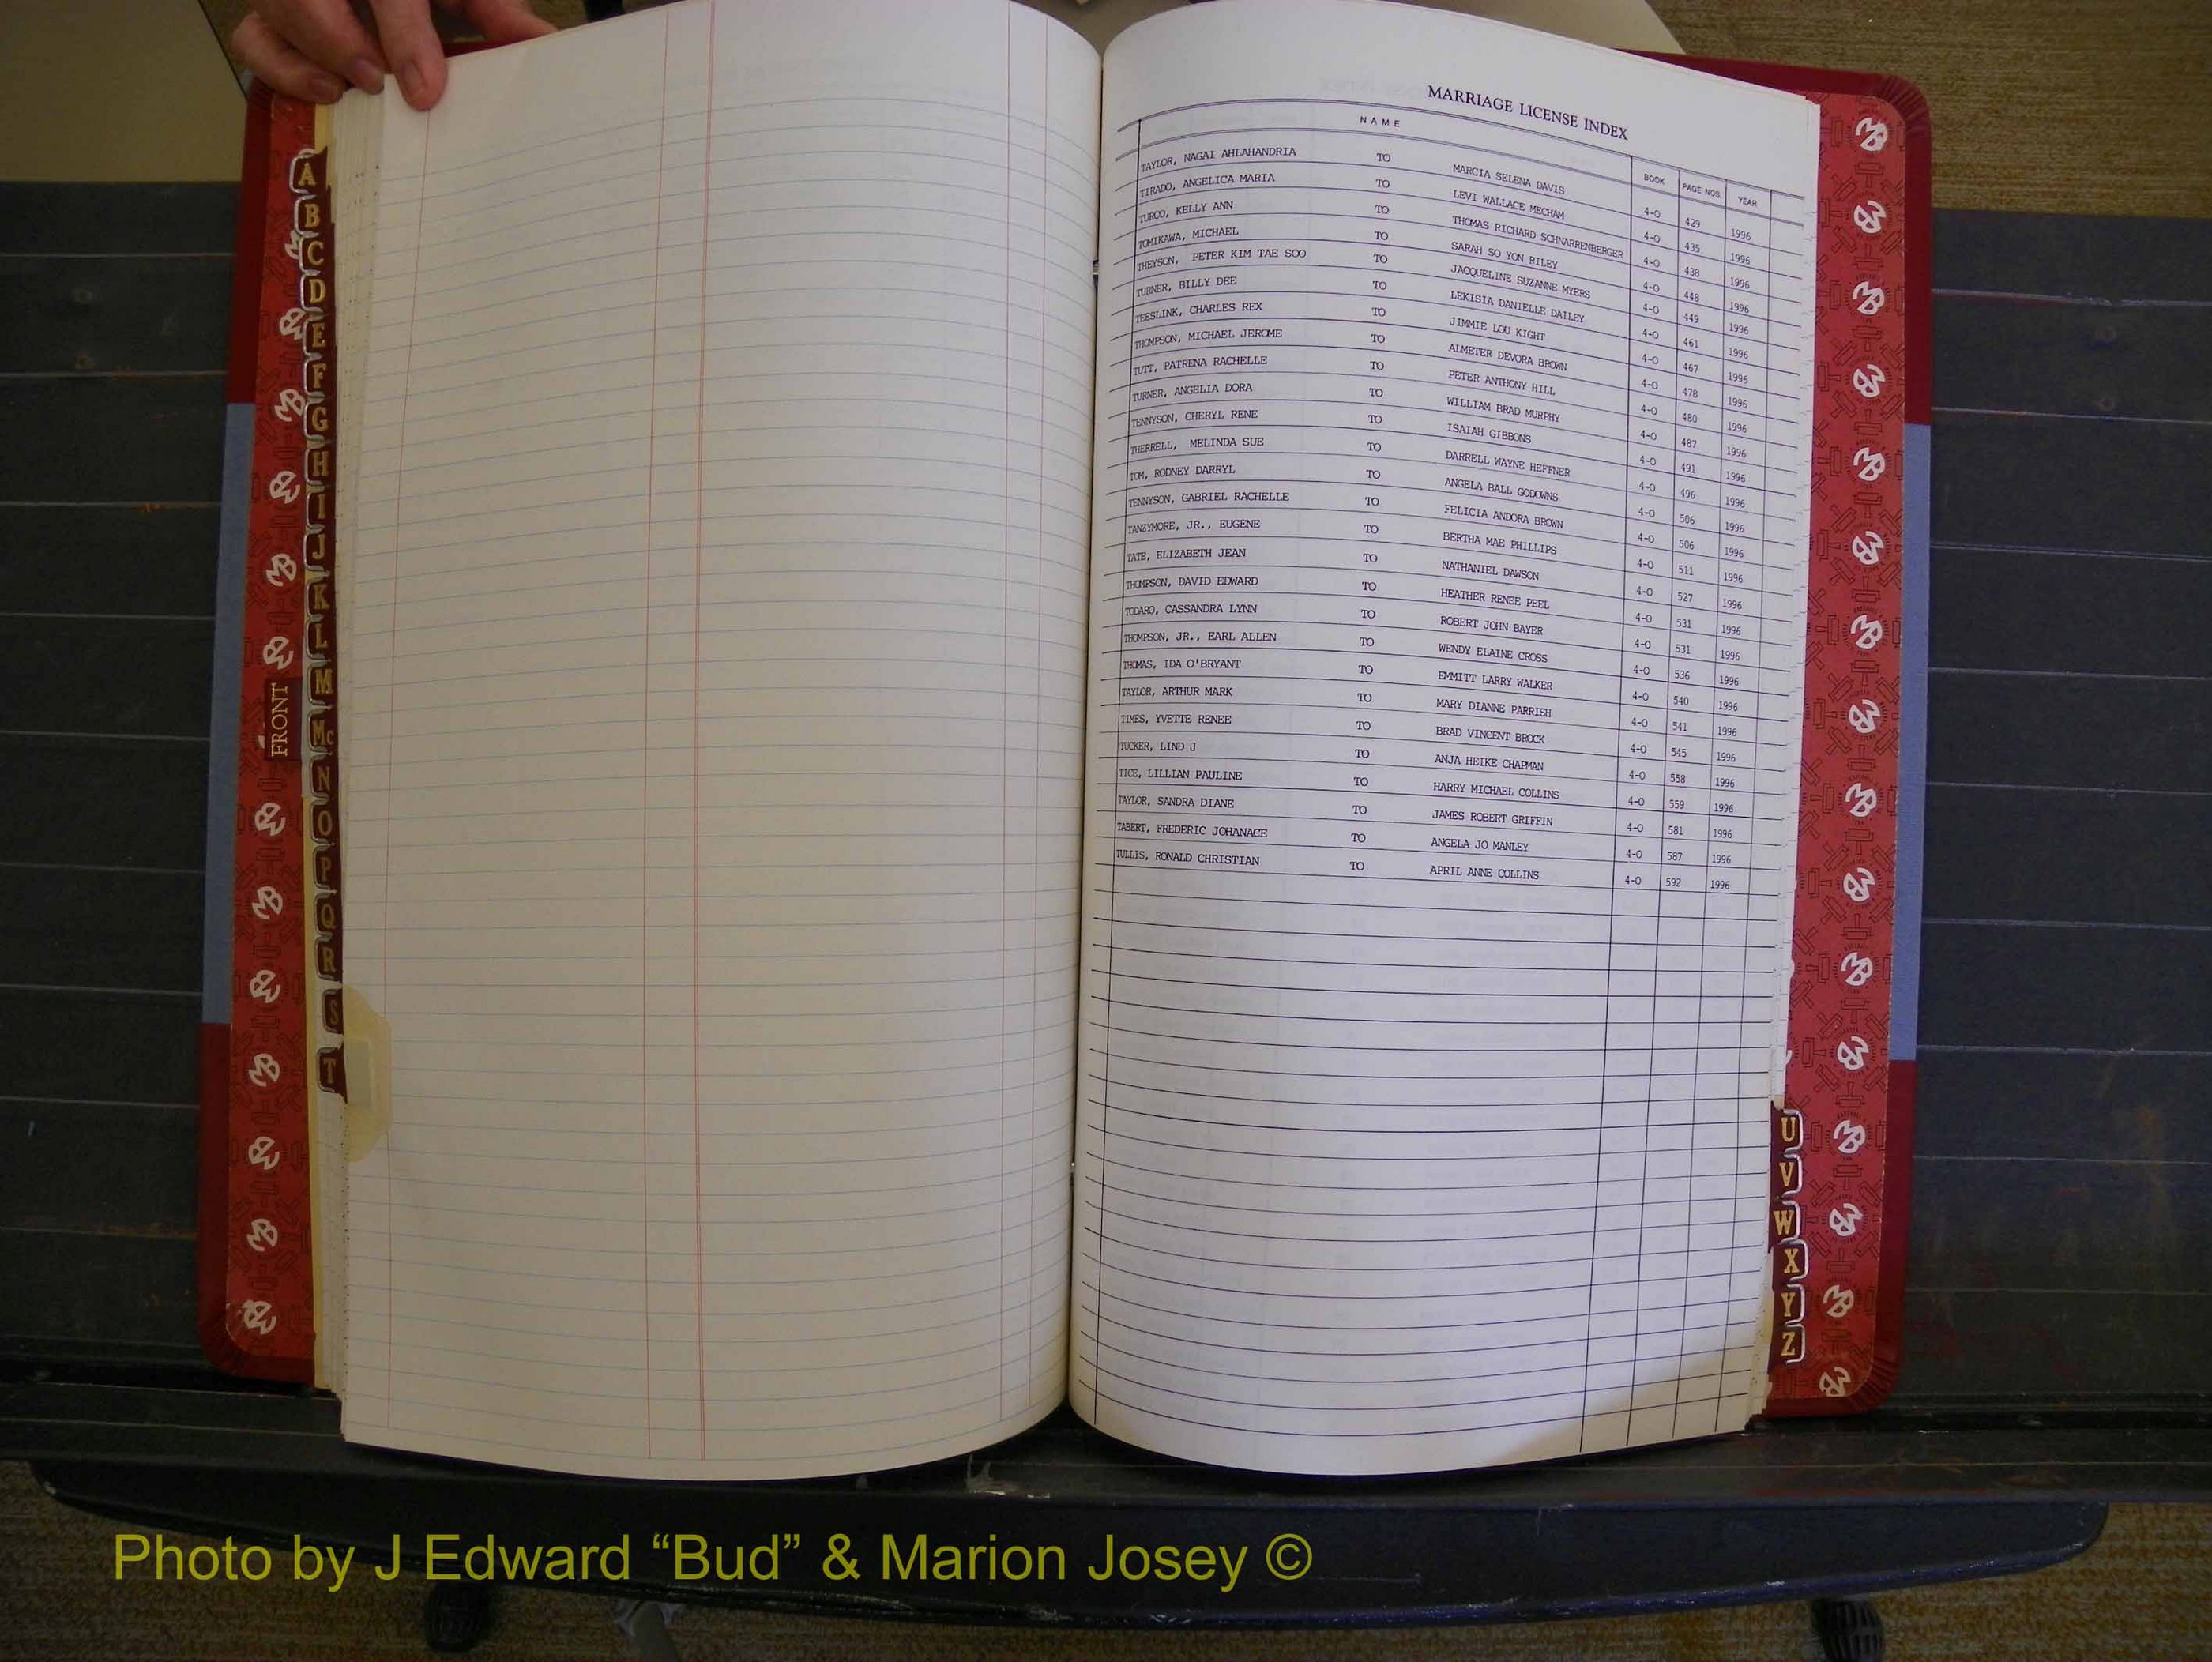 MARRIAGE LICENSE INDEX
NAME BOOK PAGE NOS. YEAR
TAYLOR, NAGAI AHLAHANDRIA TO MARCIA SELENA DAVIS 4-O 429 1996
TIRADO, ANGELICA MARIA TO LEVI WALLACE MECHAM 4-O 435 1996
TURCO, KELLY ANN TO THOMAS RICHARD SCHNARRENBERGER 4-O 438 1996
TOMIKAWA, MICHAEL TO SARAH SO YON RILEY 4-O 448 1996
THEYSON, PETER KIM TAE SOO TO JACQUELINE SUZANNE MYERS 4-O 449 1996
TURNER, BILLY DEE TO LEKISIA DANIELLE DAILEY 4-O 461 1996
TEESLINK, CHARLES REX TO JIMMIE LOU KIGHT 4-O 467 1996
THOMPSON, MICHAEL JEROME TO ALMETER DEVORA BROWN 4-O 478 1996
TUTT, PATRENA RACHELLE TO PETER ANTHONY HILL 4-O 480 1996
TURNER, ANGELIA DORA TO WILLIAM BRAD MURPHY 4-O 487 1996
TENNYSON, CHERYL RENE TO ISAIAH GIBBONS 4-O 491 1996
THERRELL, MELINDA SUE TO DARRELL WAYNE HEFFNER 4-O 496 1996
TOM, RODNEY DARRYL TO ANGELA BALL GODOWNS 4-O 506 1996
TENNYSON, GABRIEL RACHELLE TO FELICIA ANDORA BROWN 4-O 506 1996
TANZYMORE, JR., EUGENE TO BERTHA MAE PHILLIPS 4-O 511 1996
TATE, ELIZABETH JEAN TO NATHANIEL DAWSON 4-O 527 1996
THOMPSON, DAVID EDWARD TO HEATHER RENEE PEEL 4-O 531 1996
TODARO, CASSANDRA LYNN TO ROBERT JOHN BAYER 4-O 531 1996
THOMPSON, JR., EARL ALLEN TO WENDY ELAINE CROSS 4-O 536 1996
THOMAS, IDA O'BRYANT TO EMMITT LARRY WALKER 4-O 540 1996
TAYLOR, ARTHUR MARK TO MARY DIANNE PARRISH 4-O 541 1996
TIMES, YVETTE RENEE TO BRAD VINCENT BROCK 4-O 545 1996
TUCKER, LIND J TO ANJA HEIKE CHAPMAN 4-O 558 1996
TICE, LILLIAN PAULINE TO HARRY MICHAEL COLLINS 4-O 559 1996
TAYLOR, SANDRA DIANE TO JAMES ROBERT GRIFFIN 4-O 581 1996
TABERT, FREDERIC JOHANACE TO ANGELA JO MANLEY 4-O 587 1996
TULLIS, RONALD CHRISTIAN TO APRIL ANNE COLLINS 4-O 592 1996
A
B
C
D
E
F
G
H
I
J
K
L
M
Mc
N
O
P
Q
R
S
T
FRONT
U
V
W
X
Y
Z
Photo by J Edward “Bud” & Marion Josey ©